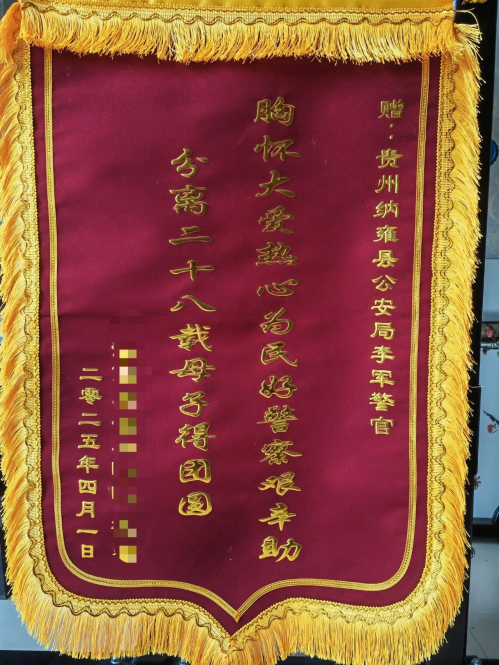 赠：贵州纳雍县公安局李军警官
胸怀大爱热心为民好警察艰辛助
分离二十八载母子得团圆
二零二五年四月一日